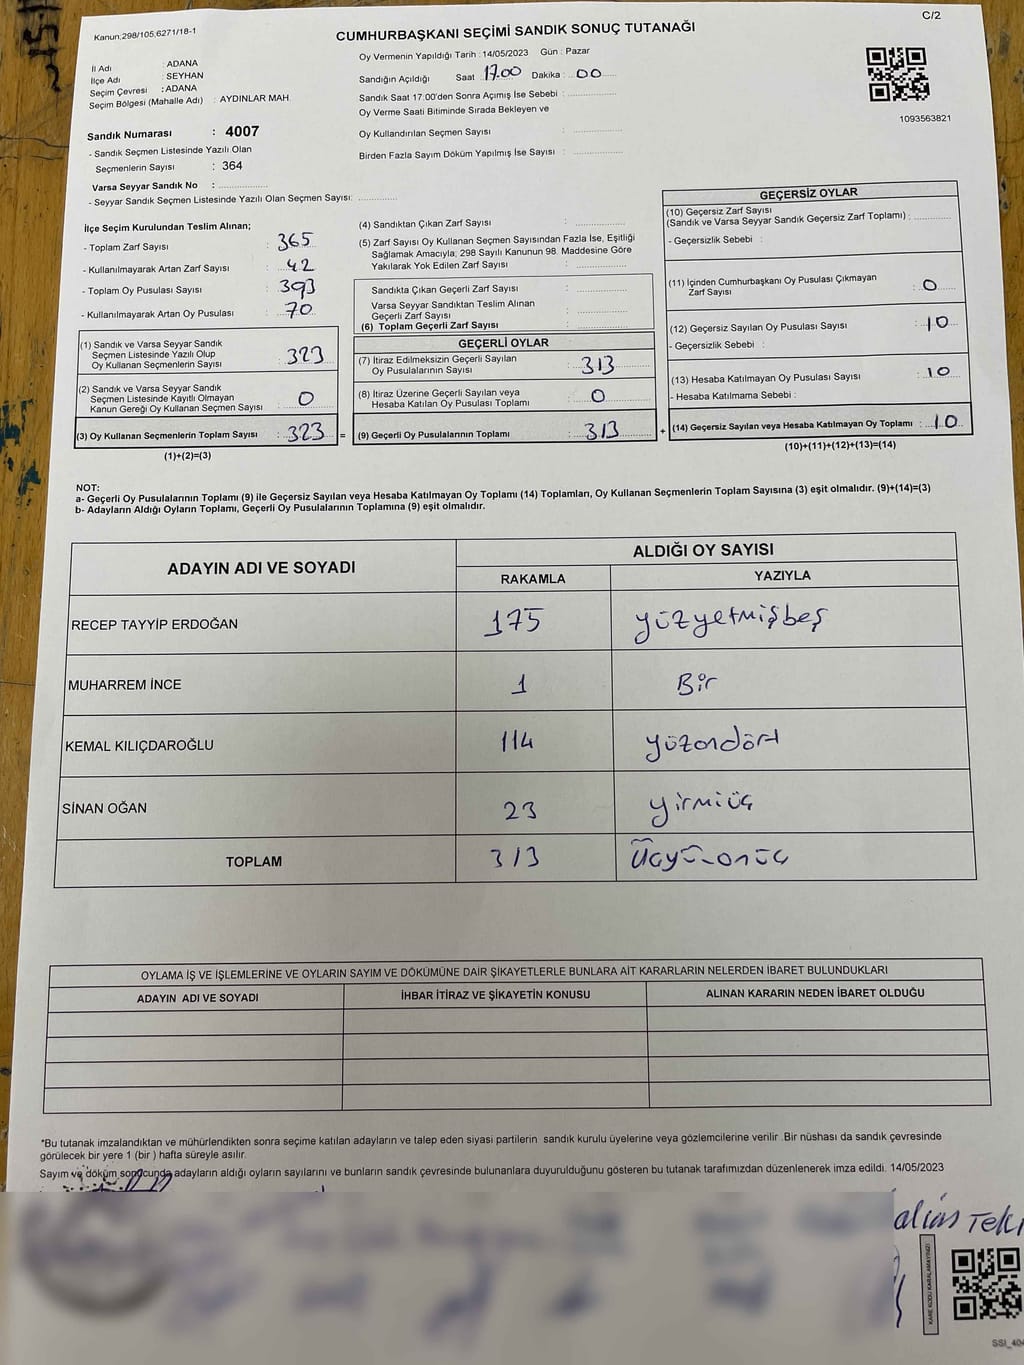 C/2
Kanun:298/105,6271/18-1
CUMHURBAŞKANI SEÇİMİ SANDIK SONUÇ TUTANAĞI
İl Adı : ADANA
İlçe Adı : SEYHAN
Seçim Çevresi : ADANA
Seçim Bölgesi (Mahalle Adı) : AYDINLAR MAH.
Oy Vermenin Yapıldığı Tarih : 14/05/2023 Gün : Pazar
Sandığın Açıldığı Saat 17.00 Dakika : 00
Sandık Saat 17:00'den Sonra Açımış İse Sebebi :
Oy Verme Saati Bitiminde Sırada Bekleyen ve
Oy Kullandırılan Seçmen Sayısı :
Birden Fazla Sayım Döküm Yapılmış İse Sayısı :
1093563821
Sandık Numarası : 4007
- Sandık Seçmen Listesinde Yazılı Olan
Seçmenlerin Sayısı : 364
Varsa Seyyar Sandık No :
- Seyyar Sandık Seçmen Listesinde Yazılı Olan Seçmen Sayısı:
İlçe Seçim Kurulundan Teslim Alınan;
- Toplam Zarf Sayısı : 365
- Kullanılmayarak Artan Zarf Sayısı : 42
- Toplam Oy Pusulası Sayısı : 393
- Kullanılmayarak Artan Oy Pusulası : 70
(1) Sandık ve Varsa Seyyar Sandık
Seçmen Listesinde Yazılı Olup
Oy Kullanan Seçmenlerin Sayısı : 323
(2) Sandık ve Varsa Seyyar Sandık
Seçmen Listesinde Kayıtlı Olmayan
Kanun Gereği Oy Kullanan Seçmen Sayısı : 0
(3) Oy Kullanan Seçmenlerin Toplam Sayısı : 323 =
(1)+(2)=(3)
(4) Sandıktan Çıkan Zarf Sayısı :
(5) Zarf Sayısı Oy Kullanan Seçmen Sayısından Fazla İse, Eşitliği
Sağlamak Amacıyla, 298 Sayılı Kanunun 98. Maddesine Göre
Yakılarak Yok Edilen Zarf Sayısı :
Sandıkta Çıkan Geçerli Zarf Sayısı :
Varsa Seyyar Sandıktan Teslim Alınan
Geçerli Zarf Sayısı :
(6) Toplam Geçerli Zarf Sayısı :
GEÇERLİ OYLAR
(7) İtiraz Edilmeksizin Geçerli Sayılan
Oy Pusulalarının Sayısı : 313
(8) İtiraz Üzerine Geçerli Sayılan veya
Hesaba Katılan Oy Pusulası Toplamı : 0
(9) Geçerli Oy Pusulalarının Toplamı : 313 +
GEÇERSİZ OYLAR
(10) Geçersiz Zarf Sayısı
(Sandık ve Varsa Seyyar Sandık Geçersiz Zarf Toplamı) :
- Geçersizlik Sebebi :
(11) İçinden Cumhurbaşkanı Oy Pusulası Çıkmayan
Zarf Sayısı : 0
(12) Geçersiz Sayılan Oy Pusulası Sayısı : 10
- Geçersizlik Sebebi :
(13) Hesaba Katılmayan Oy Pusulası Sayısı : 10
- Hesaba Katılmama Sebebi :
(14) Geçersiz Sayılan veya Hesaba Katılmayan Oy Toplamı : 10
(10)+(11)+(12)+(13)=(14)
NOT:
a- Geçerli Oy Pusulalarının Toplamı (9) ile Geçersiz Sayılan veya Hesaba Katılmayan Oy Toplamı (14) Toplamları, Oy Kullanan Seçmenlerin Toplam Sayısına (3) eşit olmalıdır. (9)+(14)=(3)
b- Adayların Aldığı Oyların Toplamı, Geçerli Oy Pusulalarının Toplamına (9) eşit olmalıdır.
ADAYIN ADI VE SOYADI
ALDIĞI OY SAYISI
RAKAMLA YAZIYLA
RECEP TAYYİP ERDOĞAN 175 yüzyetmişbeş
MUHARREM İNCE 1 Bir
KEMAL KILIÇDAROĞLU 114 yüzondört
SİNAN OĞAN 23 yirmiüç
TOPLAM 313
OYLAMA İŞ VE İŞLEMLERİNE VE OYLARIN SAYIM VE DÖKÜMÜNE DAİR ŞİKAYETLERLE BUNLARA AİT KARARLARIN NELERDEN İBARET BULUNDUKLARI
ADAYIN ADI VE SOYADI İHBAR İTİRAZ VE ŞİKAYETİN KONUSU ALINAN KARARIN NEDEN İBARET OLDUĞU
*Bu tutanak imzalandıktan ve mühürlendikten sonra seçime katılan adayların ve talep eden siyasi partilerin sandık kurulu üyelerine veya gözlemcilerine verilir .Bir nüshası da sandık çevresinde
görülecek bir yere 1 (bir ) hafta süreyle asılır.
Sayım ve döküm sonucunda adayların aldığı oyların sayılarını ve bunların sandık çevresinde bulunanlara duyurulduğunu gösteren bu tutanak tarafımızdan düzenlenerek imza edildi. 14/05/2023
KARE KODU KARALAMAYINIZ!
SSI_404